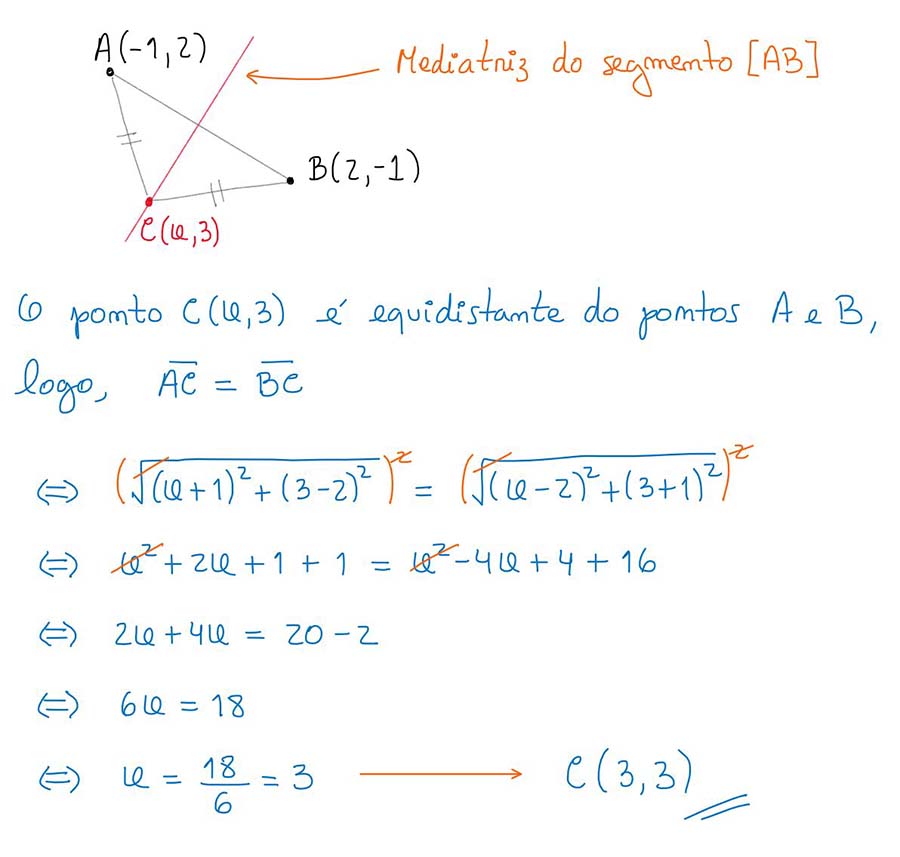 A(-1,2)
Mediatriz do segmento [AB]
B(2,-1)
C(k,3)
O ponto C(k,3) é equidistante do pontos A e B,
logo, A̅C̅ = B̅C̅
⇔ (√((k+1)²+(3-2)²))² = (√((k-2)²+(3+1)²))²
⇔ k²+2k+1+1 = k²-4k+4+16
⇔ 2k+4k = 20-2
⇔ 6k = 18
⇔ k = 18/6 = 3 → C(3,3)